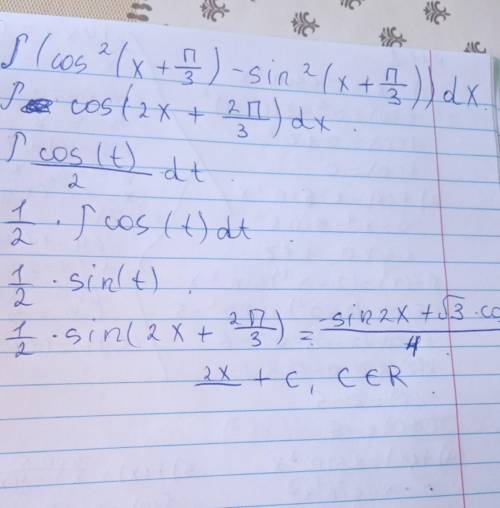 ∫(cos²(x + П/3) - sin²(x + П/3)) dx
∫ cos(2x + 2П/3) dx.
∫ cos(t)/2 dt.
1/2 · ∫ cos(t) dt.
1/2 · sin(t).
1/2 · sin(2x + 2П/3) = -sin2x + √3 · co
4
2x + C, C ∈ R.